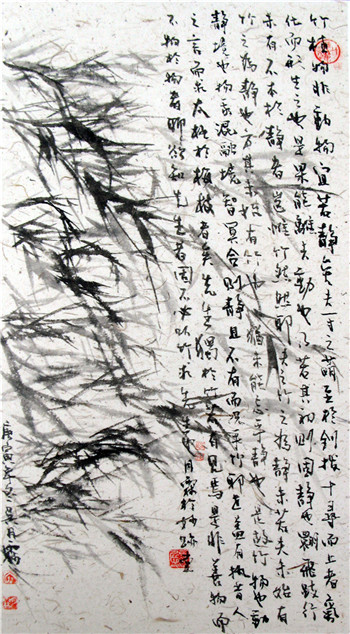 竹植物非動物宜若靜矣夫一寸之萌至於劍拔十尋而上者氣
化而形生之也是果能離夫動也乎若其初則固靜也翾飛跂行
亦有不本於靜者豈惟竹然然即夫竹之為靜亦若夫未始有
竹之為靜也方其未始有竹也猶未能忘乎靜也是故竹物也動
靜境也物我混融境智冥合則靜且不有而況乎竹耶道蓋有執昔人
之言而求友於者先生獨於竹有見焉是非善物而
不物於物者聊欲知先生者固不必以竹求先生也月於妙跡堂
庚寅年冬吳月